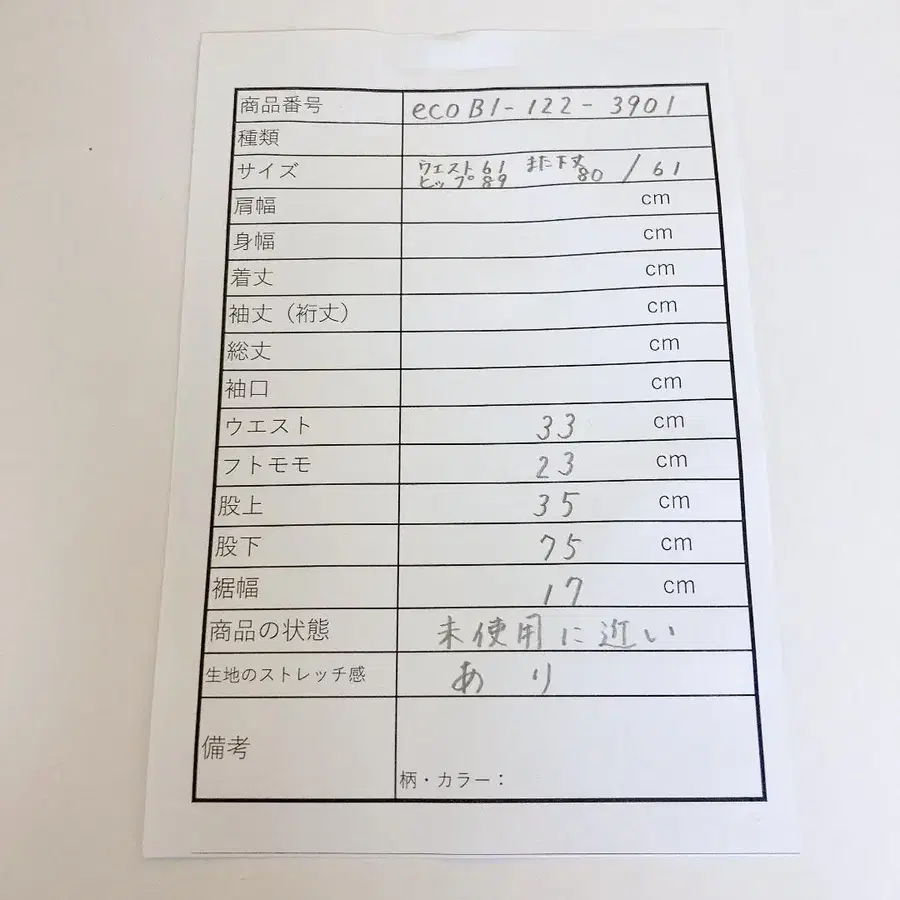 商品番号 eco B1-122-3901
種類
サイズ ウエスト61 また下丈80 / 61
ヒップ89
肩幅 cm
身幅 cm
着丈 cm
袖丈（裄丈） cm
総丈 cm
袖口 cm
ウエスト 33 cm
フトモモ 23 cm
股上 35 cm
股下 75 cm
裾幅 17 cm
商品の状態 未使用に近い
生地のストレッチ感 あり
備考
柄・カラー：